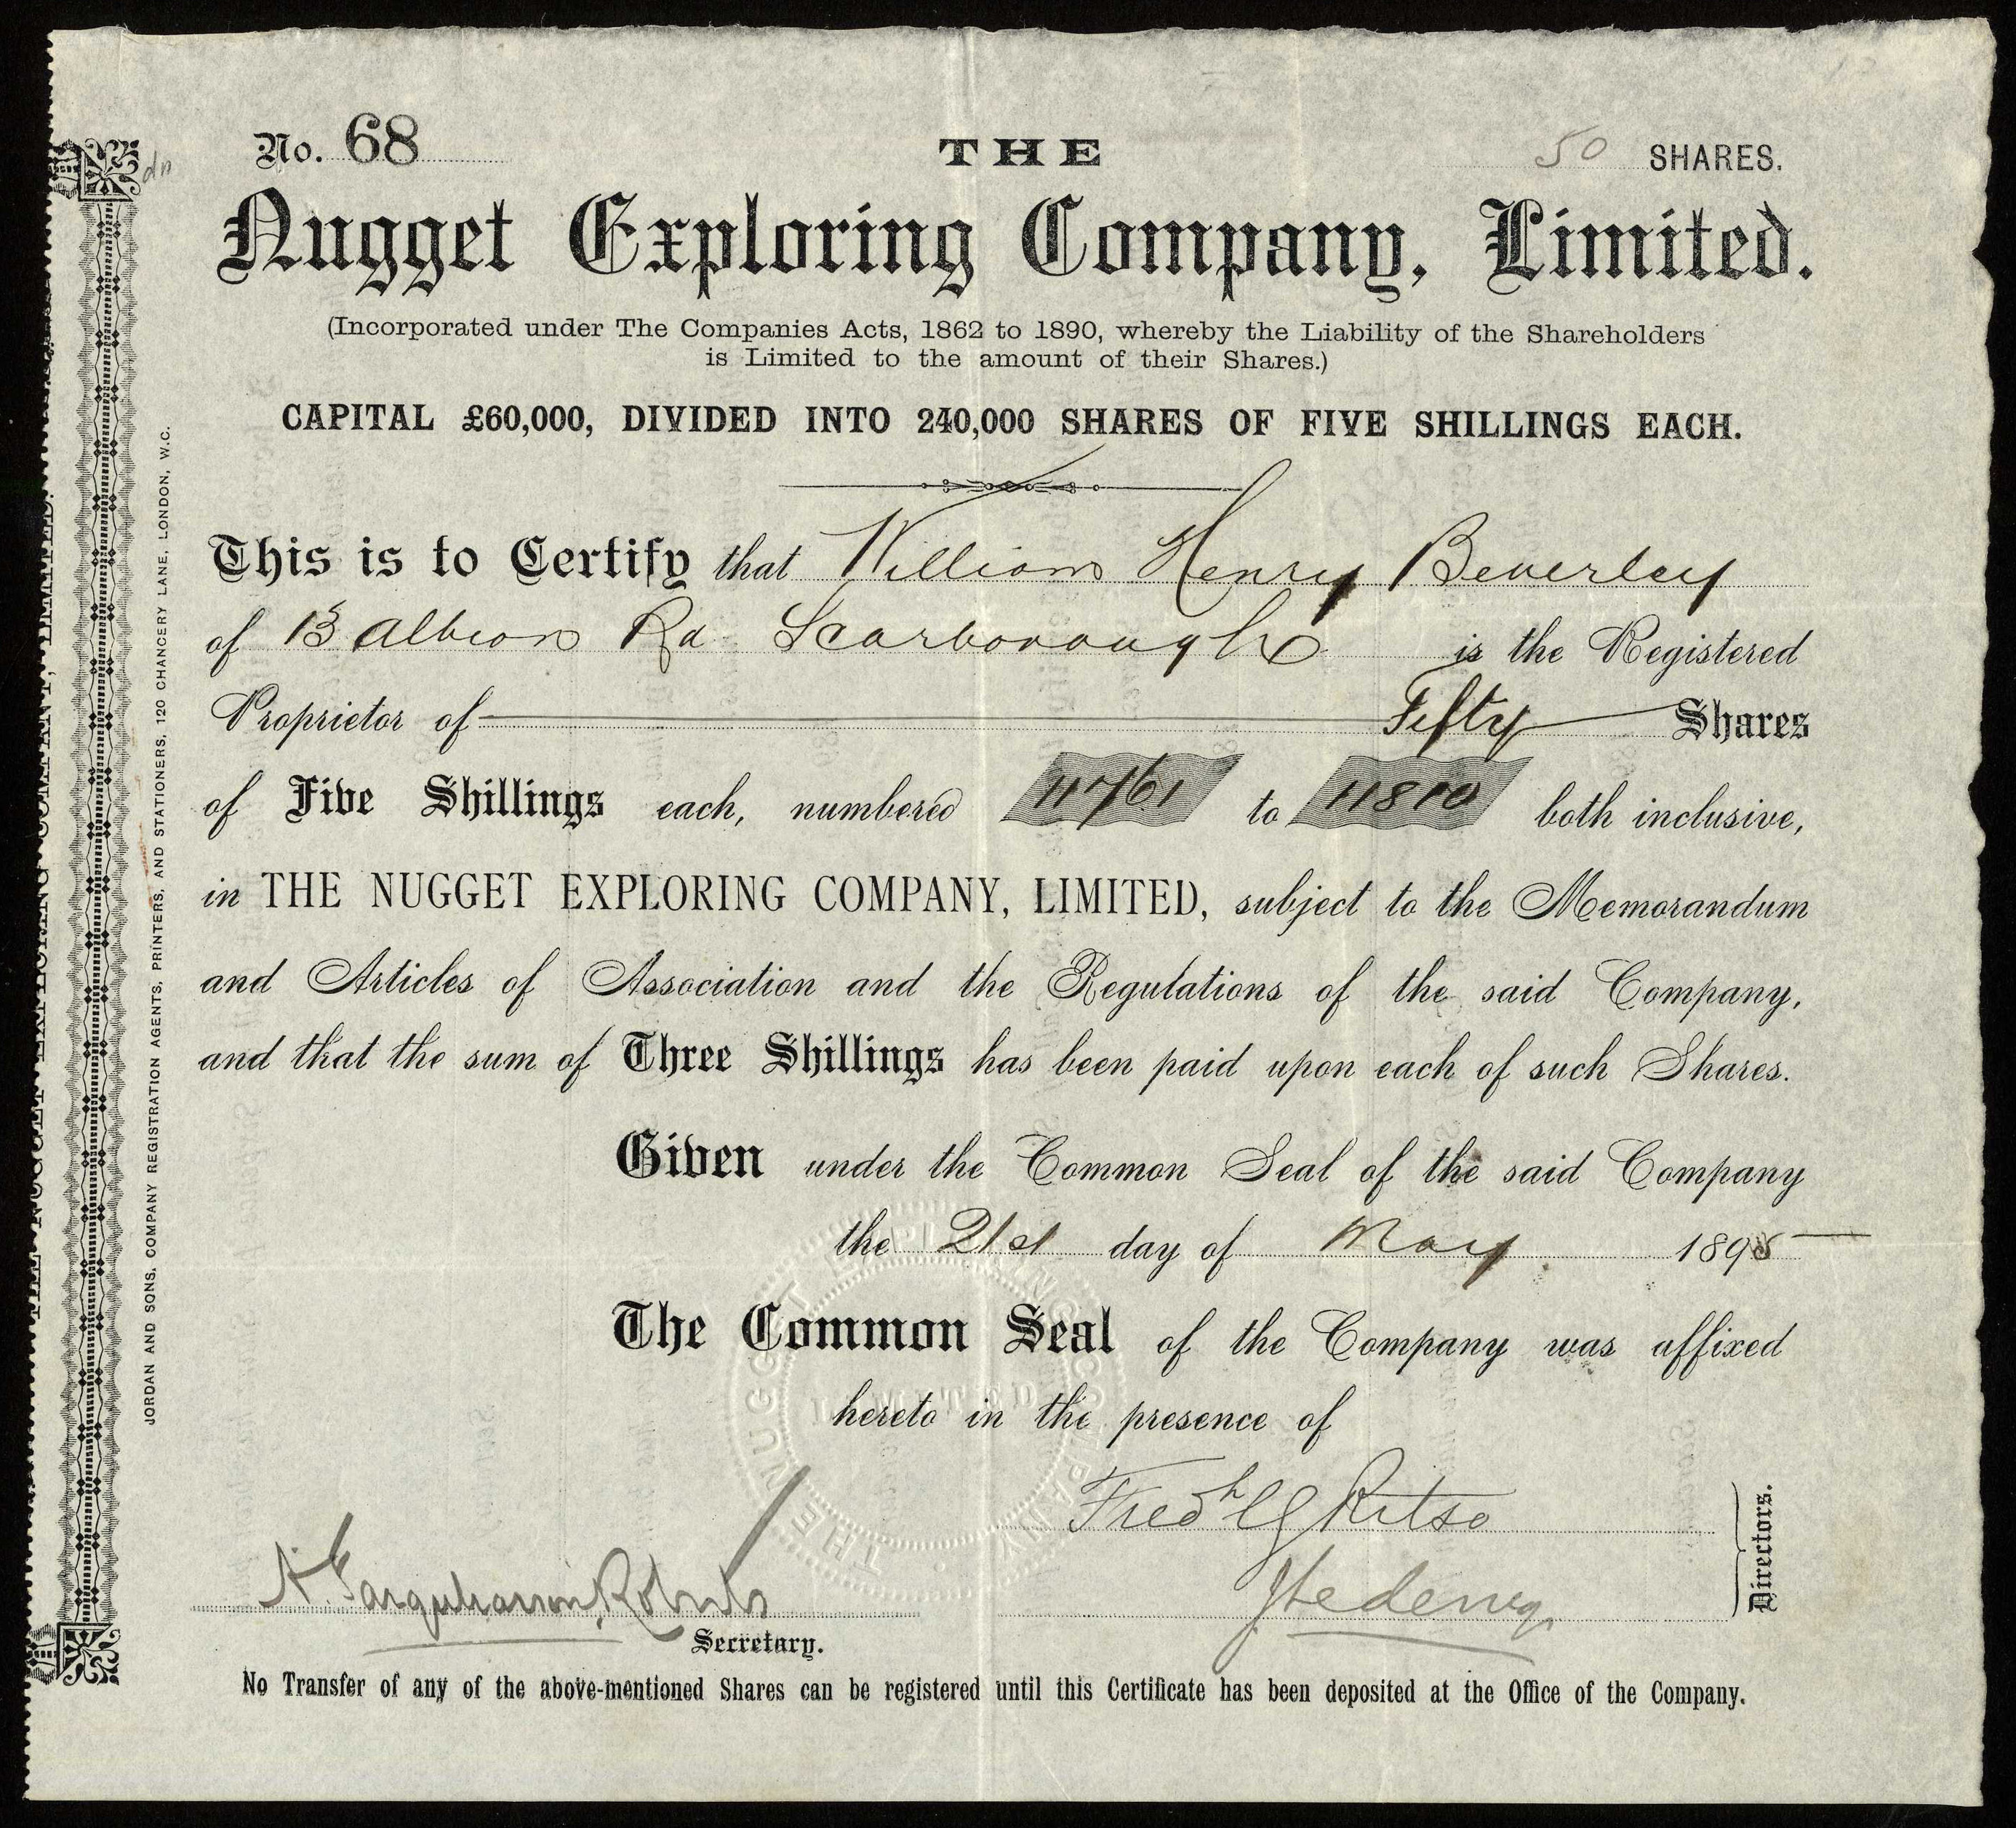 No. 68
THE
50 SHARES.
Nugget Exploring Company, Limited.
(Incorporated under The Companies Acts, 1862 to 1890, whereby the Liability of the Shareholders
is Limited to the amount of their Shares.)
CAPITAL £60,000, DIVIDED INTO 240,000 SHARES OF FIVE SHILLINGS EACH.
This is to Certify that William Henry Beverley
of 13 Albion Rd Scarborough is the Registered
Proprietor of Fifty Shares
of Five Shillings each, numbered 11761 to 11810 both inclusive,
in THE NUGGET EXPLORING COMPANY, LIMITED, subject to the Memorandum
and Articles of Association and the Regulations of the said Company,
and that the sum of Three Shillings has been paid upon each of such Shares.
Given under the Common Seal of the said Company
the 21st day of May 1895
The Common Seal of the Company was affixed
hereto in the presence of
Fredk
Directors.
A. Farquharson Roberts
Secretary.
No Transfer of any of the above-mentioned Shares can be registered until this Certificate has been deposited at the Office of the Company.
JORDAN AND SONS, COMPANY REGISTRATION AGENTS, PRINTERS, AND STATIONERS, 120 CHANCERY LANE, LONDON, W.C.
THE NUGGET EXPLORING COMPANY, LIMITED.
THE NUGGET EXPLORING COMPANY LIMITED